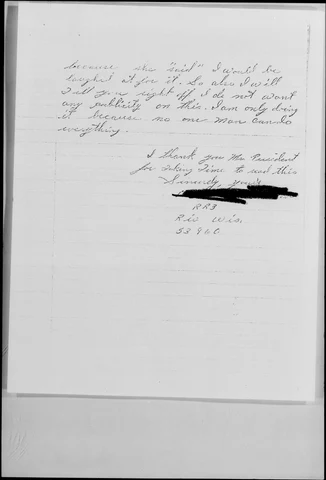 because she "said" I would be
laughed at for it. So also I will
tell you right off I do not want
any publicity on this. I am only doing
it because no one man can do
everything.
I thank you Mr. President
for taking time to read this
Sincerely yours
RR1
Rio Wis.
53960